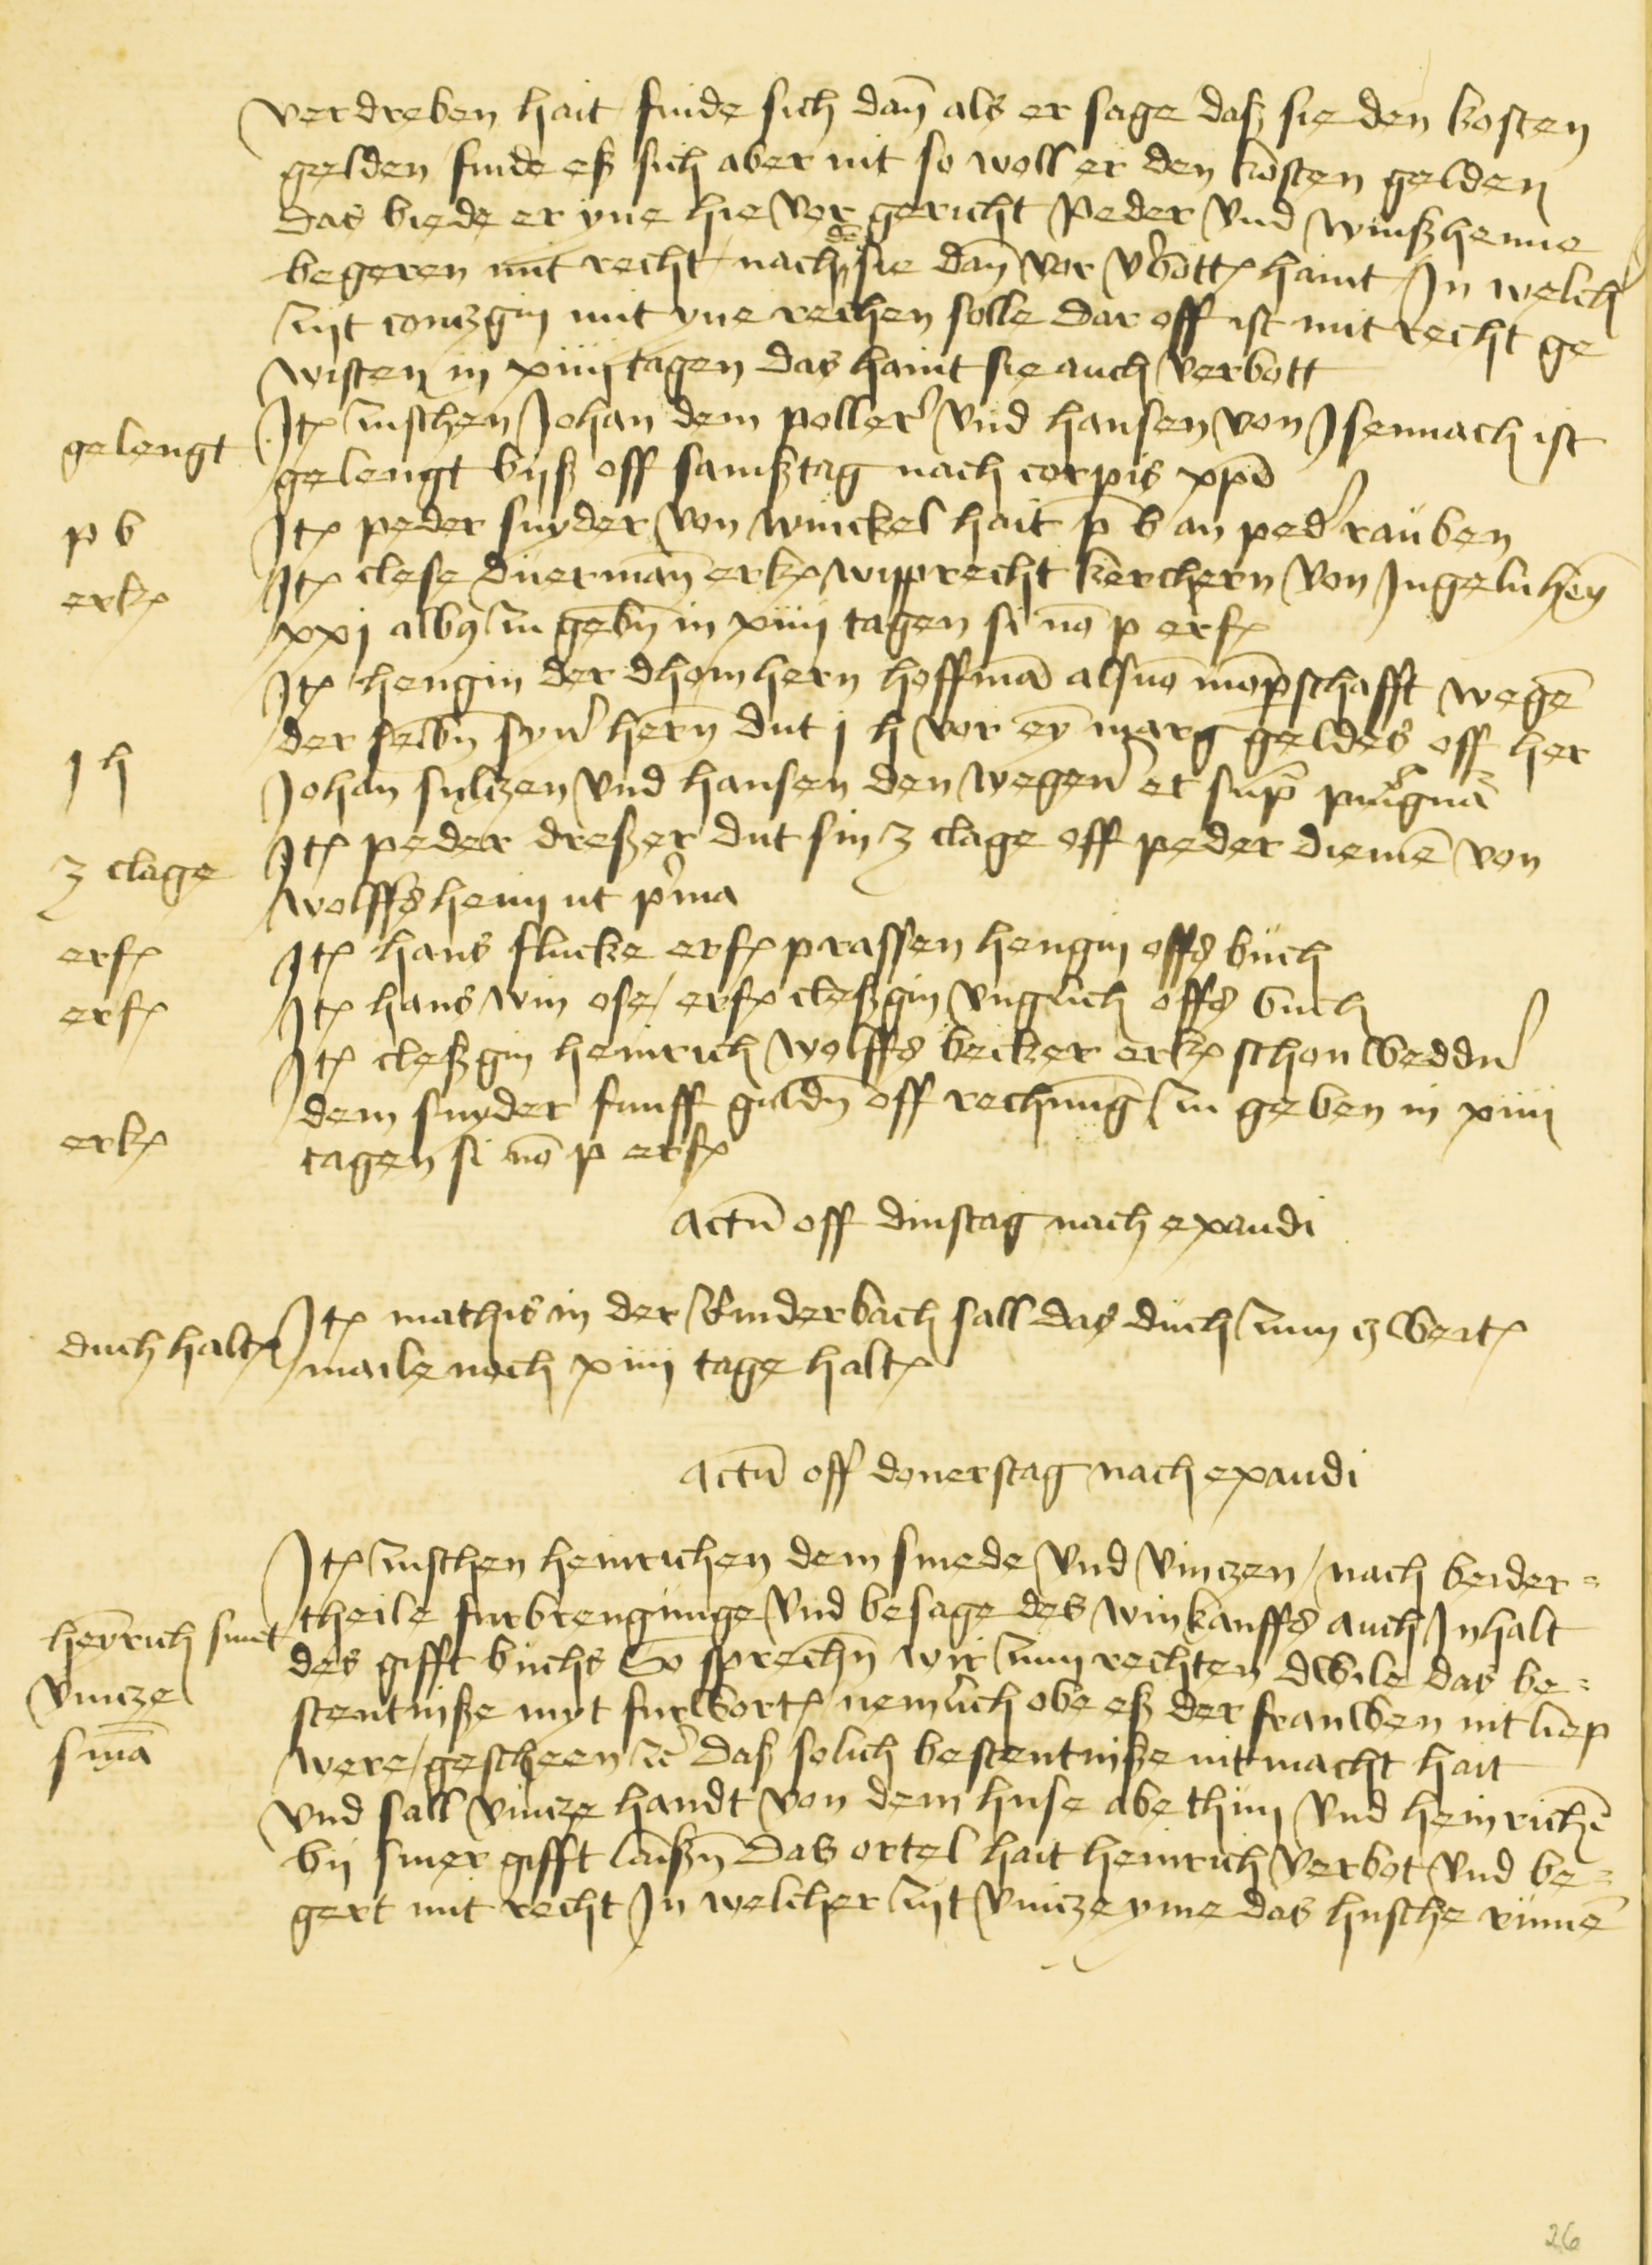 verdreben hait finde sich dan̄ als er sage daß sie den kosten
gelden finde eß sich aber nit so woll er den kosten gelden
das biede er yne hie vor gericht Peder vnd winßhenne
begeren mit recht nach dē sie dan̄ vor v'bottʒ haint In welch
zijt contzgin mit yne rechen solle dar off ist mit recht ge
wisten in xiiii tagen das haint sie auch verbott
gelengt
Itʒ zuschen Johan dem poller' vnd hansen von Isennach ist
gelengt bijß off samßtag nach corpis xpō
p b
Itʒ peder snyder von winckel hait p b an ped' rauben
erkʒ
Itʒ clese duerman̄ erkʒ wipprecht kerchern von Ingelnheȳ
xxj albꝯ zu gebn̄ in xiiii tagen si nō p erfʒ
Itʒ hengin der dhomhern hoffmā alsuō mōpschafft wegē
j h
der selbn̄ syn' hern̄ dut j h vor eȳ marg geldes off her
Johan sultzen vnd hansen den wegen' et sup̄
3 clage
Itʒ peder dreßer dut sin 3 clage off peder diemē von
wolffsheim ut p'ma
erfʒ
Itʒ hans flucke erfʒ prassen hengin offs buch
erfʒ
Itʒ hans win ose erfʒ cleßgin vnglich offs buch
Itʒ cleßgin heinrich wolffs becker erkʒ schonwedd'n
dem snyder funff guldn̄ off rechnu̅g zu geben in xiiii
erkʒ
tagen si nō p erfʒ
Actū off dinstag nach exaudi
Itʒ mathis in der Rinderbach sall das duch zum zweitʒ
duch haltʒ
maile noch xiiii tage haltʒ
Actū off donerstag nach exaudi
Itʒ zuschen heinrichen dem smede vnd vinczen / nach beider=
theile furbrengunge vnd besage des winkauffs auch Inhalt
heȳrich smet
des gifft buchs So sprechn̄ wir zum rechten dwile das be=
vincze
stentniße myt furwortʒ nemlich obe eß der frauwen nit liep
smā
were / gescheen ꝛc daß solich bestentniße nit macht hait
vnd sall vincze handt von dem huse abe thun vnd heinrichē
bij siner gifft laißn̄ Das ortel hait heinrich verbot vnd be=
gert mit recht In welcher zijt vincze yme das husche rumē
26